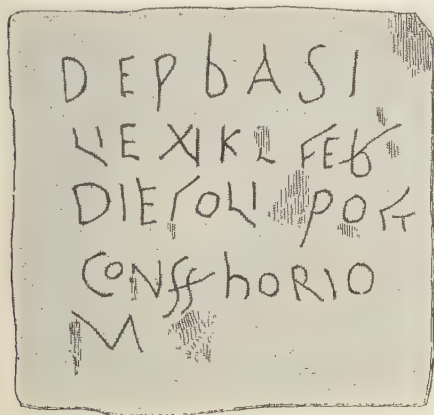 DEP bASI
LIE XI KL FEb
DIE SOLI POST
CONSS hORIO
M